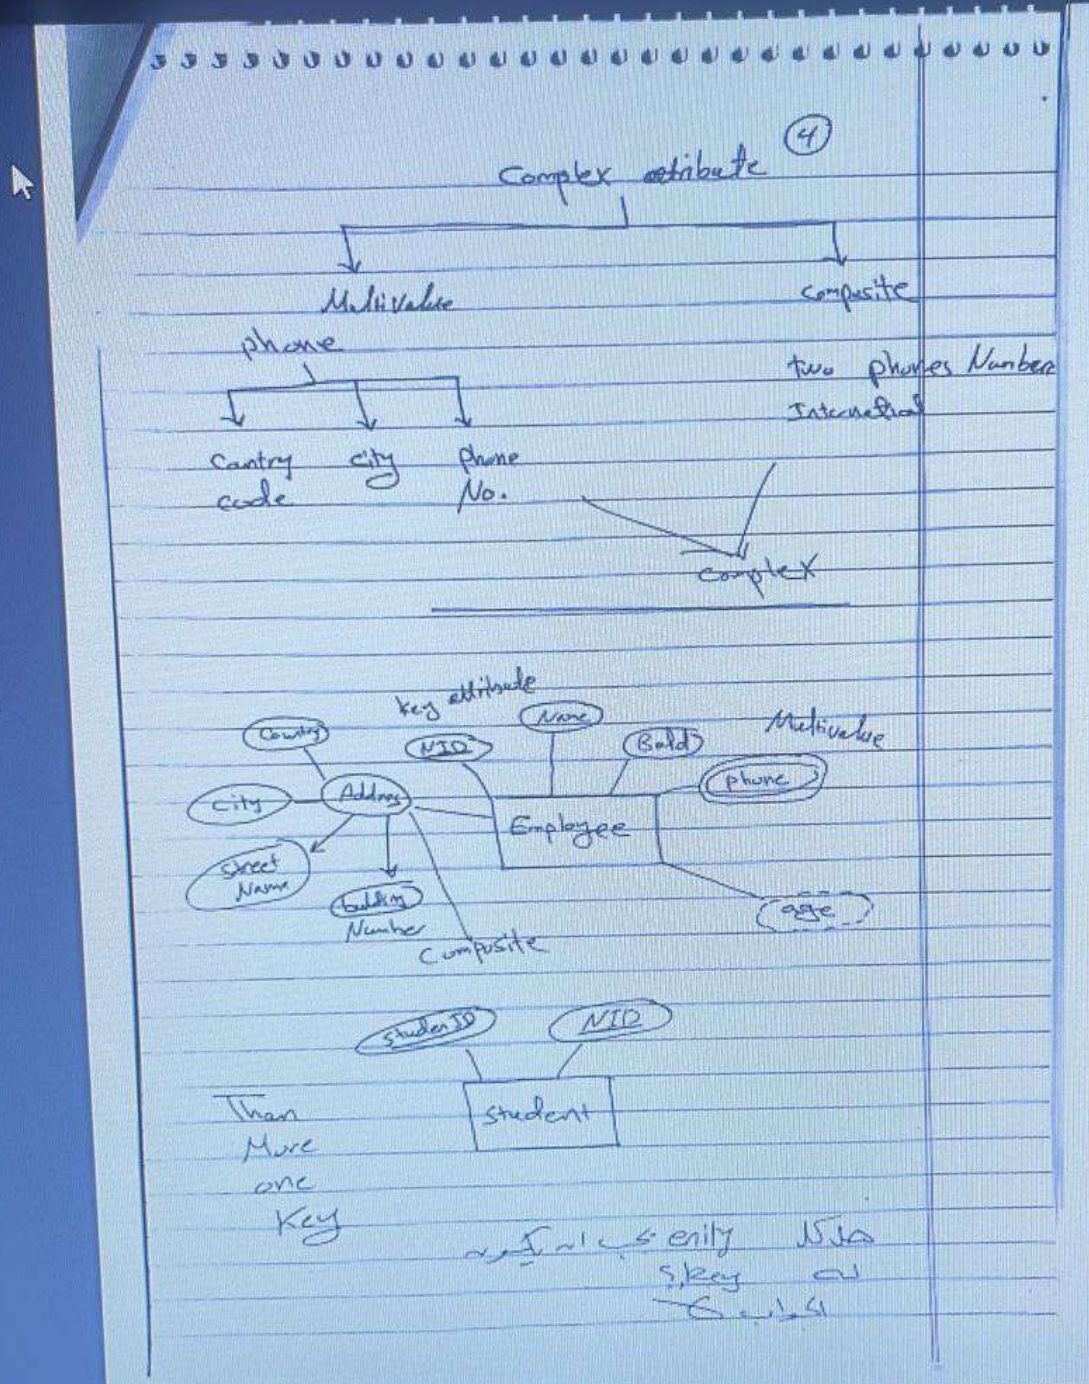 4
Complex attribute
Multivalue
Composite
phone
two phones Number
Internetional
Cantry code
city
phone No.
complex
key attribute
Country
NID
Name
Bald
Multivalue
phone
City
Address
Employee
street Name
building Number
age
Composite
Studen ID
NID
student
Than
More
one
Key
enity
له key؟